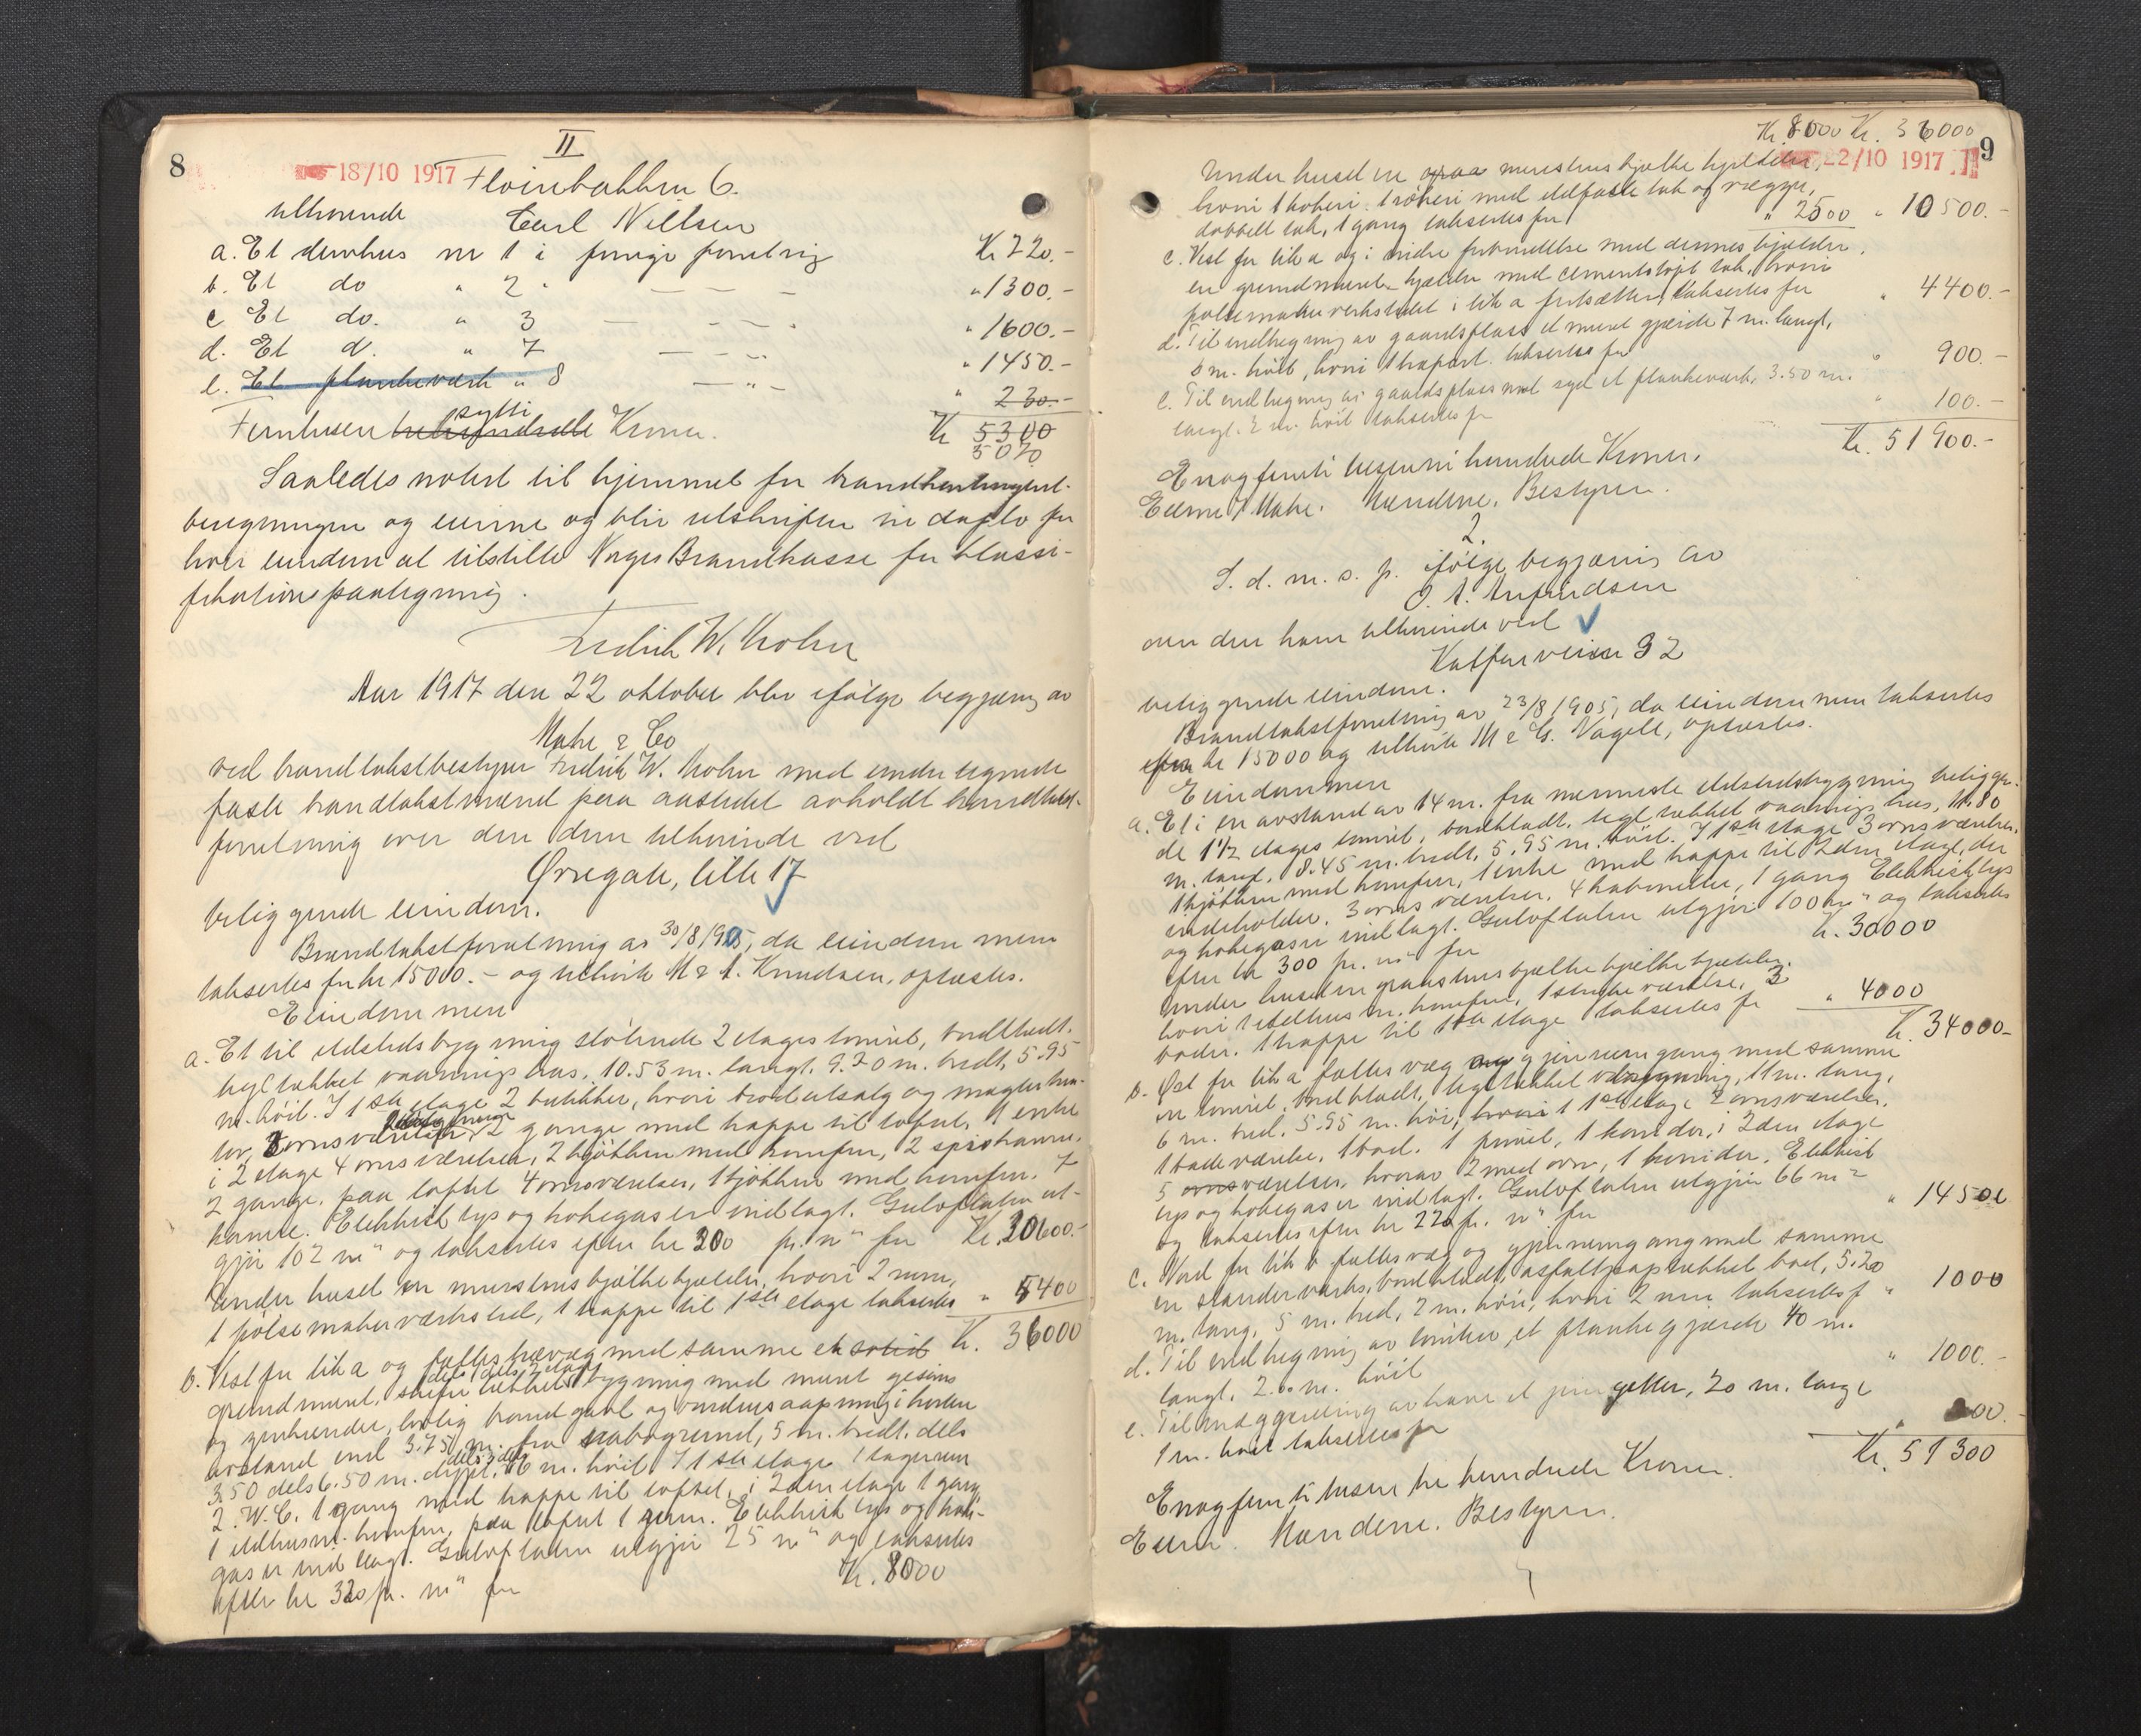 8
II
18/10 1917
Fløienbakken 6.
tilhørende
Carl Nilsen
a. Et donhus nr 1 i forrige forretnig Kr 720.-
b. Et do " 2 " — — — " 1300.-
c Et do. " 3 — — — " 1600.-
d. Et d. " 7 — — " 1450.-
e. Et plankeværk " 8 — " — " 230.-
sytti
Femtusen trehundrede Kroner. Kr 5300
5070
Saaledes notert til hjemmel for brandkontingent-
beregningen og eierne og blir utskriften in duplo for
hver eiendom at tilstille Norges Brandkasse for klassi-
fikationspaategning.
Fredrik W. Mohn
Aar 1917 den 22 oktober blev ifølge begjæring av
Mahe & Co
ved brandtakstbestyrer Fredrik W. Mohn med undertegnede
faste brandtakstmænd paa aastedet avholdt brandtakst-
forretning over den dem tilhørende ved
Øvregate, lille 17
beliggende eiendom.
Brandtakstforretning av 30/8 1905, da eiendommen
takseredes for kr 15000.- og tilhørte M & A. Knudsen, oplæstes.
Eiendommen
a. Et til ildstedsbygning støtende 2 etages tømret, bordklædt,
tegltækket vaaningshus, 10.53 m. langt, 9.20 m. bredt, 5.95
m. høit. I 1ste etage 2 butikker, hvori brødutsalg og
2 gange med trappe til loftet, 1 enke
i 2 etage 4 ovnsværelser, 2 kjøkken med komfur, 2 spiskamre,
2 gange, paa loftet 4 ovnsværelser, 1 kjøkken med komfur. 7
kamre. Elektrisk lys og kokegas er indlagt. Gulvflaten ut-
gjør 102 m" og takseres efter kr 300 pr. m" for Kr. 30600.-
Under huset er murstens bjælkekjelder, hvori 2 rum,
1 pølsemakerverksted, 1 trappe til 1ste etage takseres " 5400
Kr. 36000
b. Vest for litr a og fælles trævæg med samme et
grundmuret, skifertækket bygning med muret gesims
og zinkrender, lovlig brandgavl og vindusaapning i
avstand indtil 3.75 m. fra nabogrund, 5 m. bredt, dels
3.50 dels 6.50 m. dypt, 6 m. høit. I 1ste etage 1 lagerrum
2. W.C. 1 gang med trappe til loftet, i 2den etage 1 gang
1 ildhus m. komfur, paa loftet 1 rum. Elektrisk lys og koke-
gas er indlagt. Gulvflaten utgjør 25 m" og takseres
efter kr 320 pr. m" for Kr. 8000
9
Kr. 8000 Kr. 36000
22/10 1917
Under huset er murstens bjælke kjelder,
hvori 1 kokeri, 1 røkeri med ildfaste tak og vægge,
dobbelt tak, 1 gang takseres for " 2500 " 10500.-
c. Vest for litr a og i indre forbindelse med dennes kjelder,
en grundmuret kjelder med cementstøpt tak, hvori
pølsemakerverkstedet i litr a fortsætter, takseres for " 4400.-
d. Til indhegning av gaardsplass et muret gjerde 7 m. langt,
6 m. høit, hvori 1 træport. takseres for " 900.-
e. Til indhegning av gaardsplass mot syd et plankeverk, 3.50 m.
langt, 2 m. høit takseres for " 100.-
Kr. 51900.-
Enogfemti tusen ni hundrede Kroner.
Eierne / Mahe. Mændene. Bestyrer.
2.
S. d. m. s. p. ifølge begjæring av
O. A. Anfindsen
over den ham tilhørende ved
Kalfarveien 32
beliggende eiendom.
Brandtakstforretning av 23/8 1905, da eiendommen takseredes
for kr 15000 og tilhørte M & G. Vagele, oplæstes.
Eiendommen
a. Et i en avstand av 14 m. fra nærmeste ildstedsbygning beliggen-
de 1½ etages tømret, bordklædt, tegltækket vaaningshus, 11.80
m. langt, 8.45 m. bredt, 5.95 m. høit. I 1ste etage 3 ovnsværelser,
1 kjøkken med komfur, 1 entre med trappe til 2den etage, der
indeholder 3 ovnsværelser, 4 kabinetter, 1 gang Elektrisk lys
og kokegas er indlagt. Gulvflaten utgjør 100 m" og takseres
efter kr 300 pr. m" for Kr. 30000
under huset er graastens bjælkekjelder,
hvori 1 ildhus m. komfur, 1 stuteværelse, 3
boder. 1 trappe til 1ste etage takseres for " 4000
Kr. 34000-
b. Øst for litr a fælles væg og gjennemgang med samme
en tømret, bordklædt, tegltækket bygning, 11 m. lang,
6 m. bred, 5.95 m. høi, hvori i 1ste etage 2 ovnsværelser,
1 badeværelse, 1 bod. 1 privet, 1 korridor, i 2den etage
5 værelser, hvorav 2 med ovn, 1 korridor. Elektrisk
lys og kokegas er indlagt. Gulvflaten utgjør 66 m²
og takseres efter kr 220 pr. m" for " 14500
c. Nord for litr b fællesvæg og gjennemgang med samme
en standerverks, bordklædt, asfaltpaptækket bod, 5.20
m. lang, 5 m. bred, 2 m. høi, hvori 2 rum takseres f " 1000
d. Til indhegning av tomten et plankegjærde 40 m.
langt, 2.00 m. høit " 1000.-
e. Til indgjerding av have et jerngitter, 20 m. langt
1 m. høit takseres for " 800.-
Kr. 51300
Enogfemti tusen tre hundrede Kroner.
Eieren. Mændene. Bestyrer.